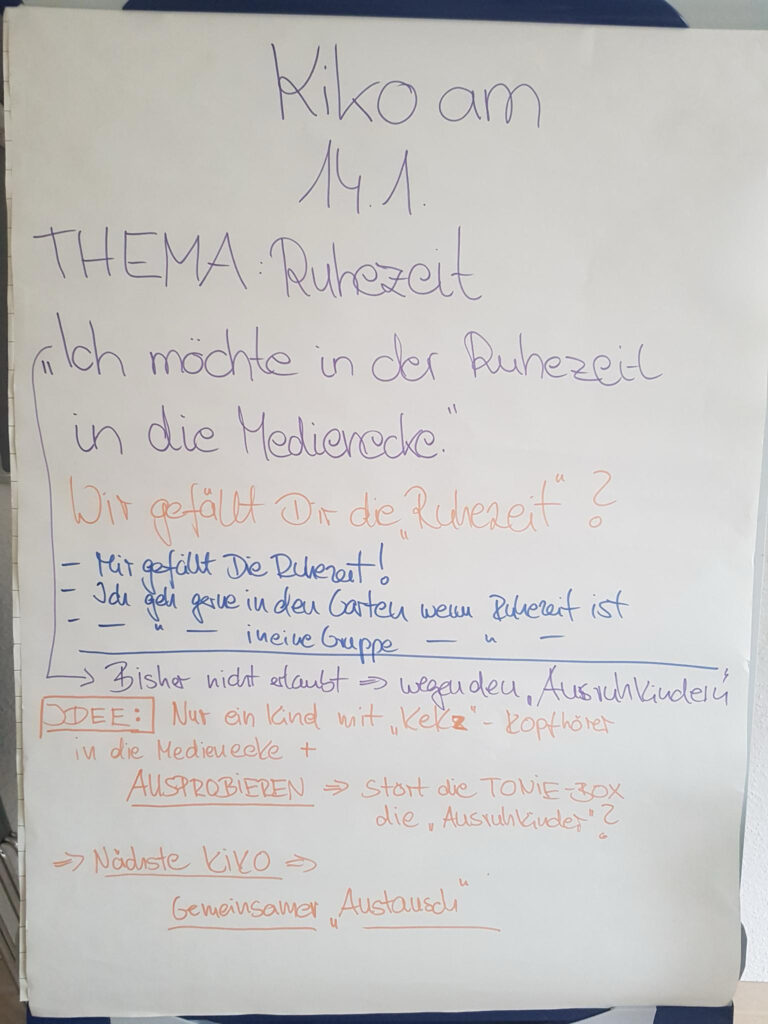 Kiko am
14.1.
THEMA: Ruhezeit
„Ich möchte in der Ruhezeit
in die Medienecke."
Wir gefällt Dir die „Ruhezeit"?
- Mir gefällt Die Ruhezeit!
- Ich geh gerne in den Garten wenn Ruhezeit ist
- — " — in eine Gruppe — " —
→ Bisher nicht erlaubt ⇒ wegen den „Ausruhkindern"
IDEE: Nur ein Kind mit „Kekz"-Kopfhörer
in die Medienecke +
AUSPROBIEREN ⇒ stört die TONIE-BOX
die „Ausruhkinder"?
⇒ Nächste KIKO ⇒
Gemeinsamer „Austausch"